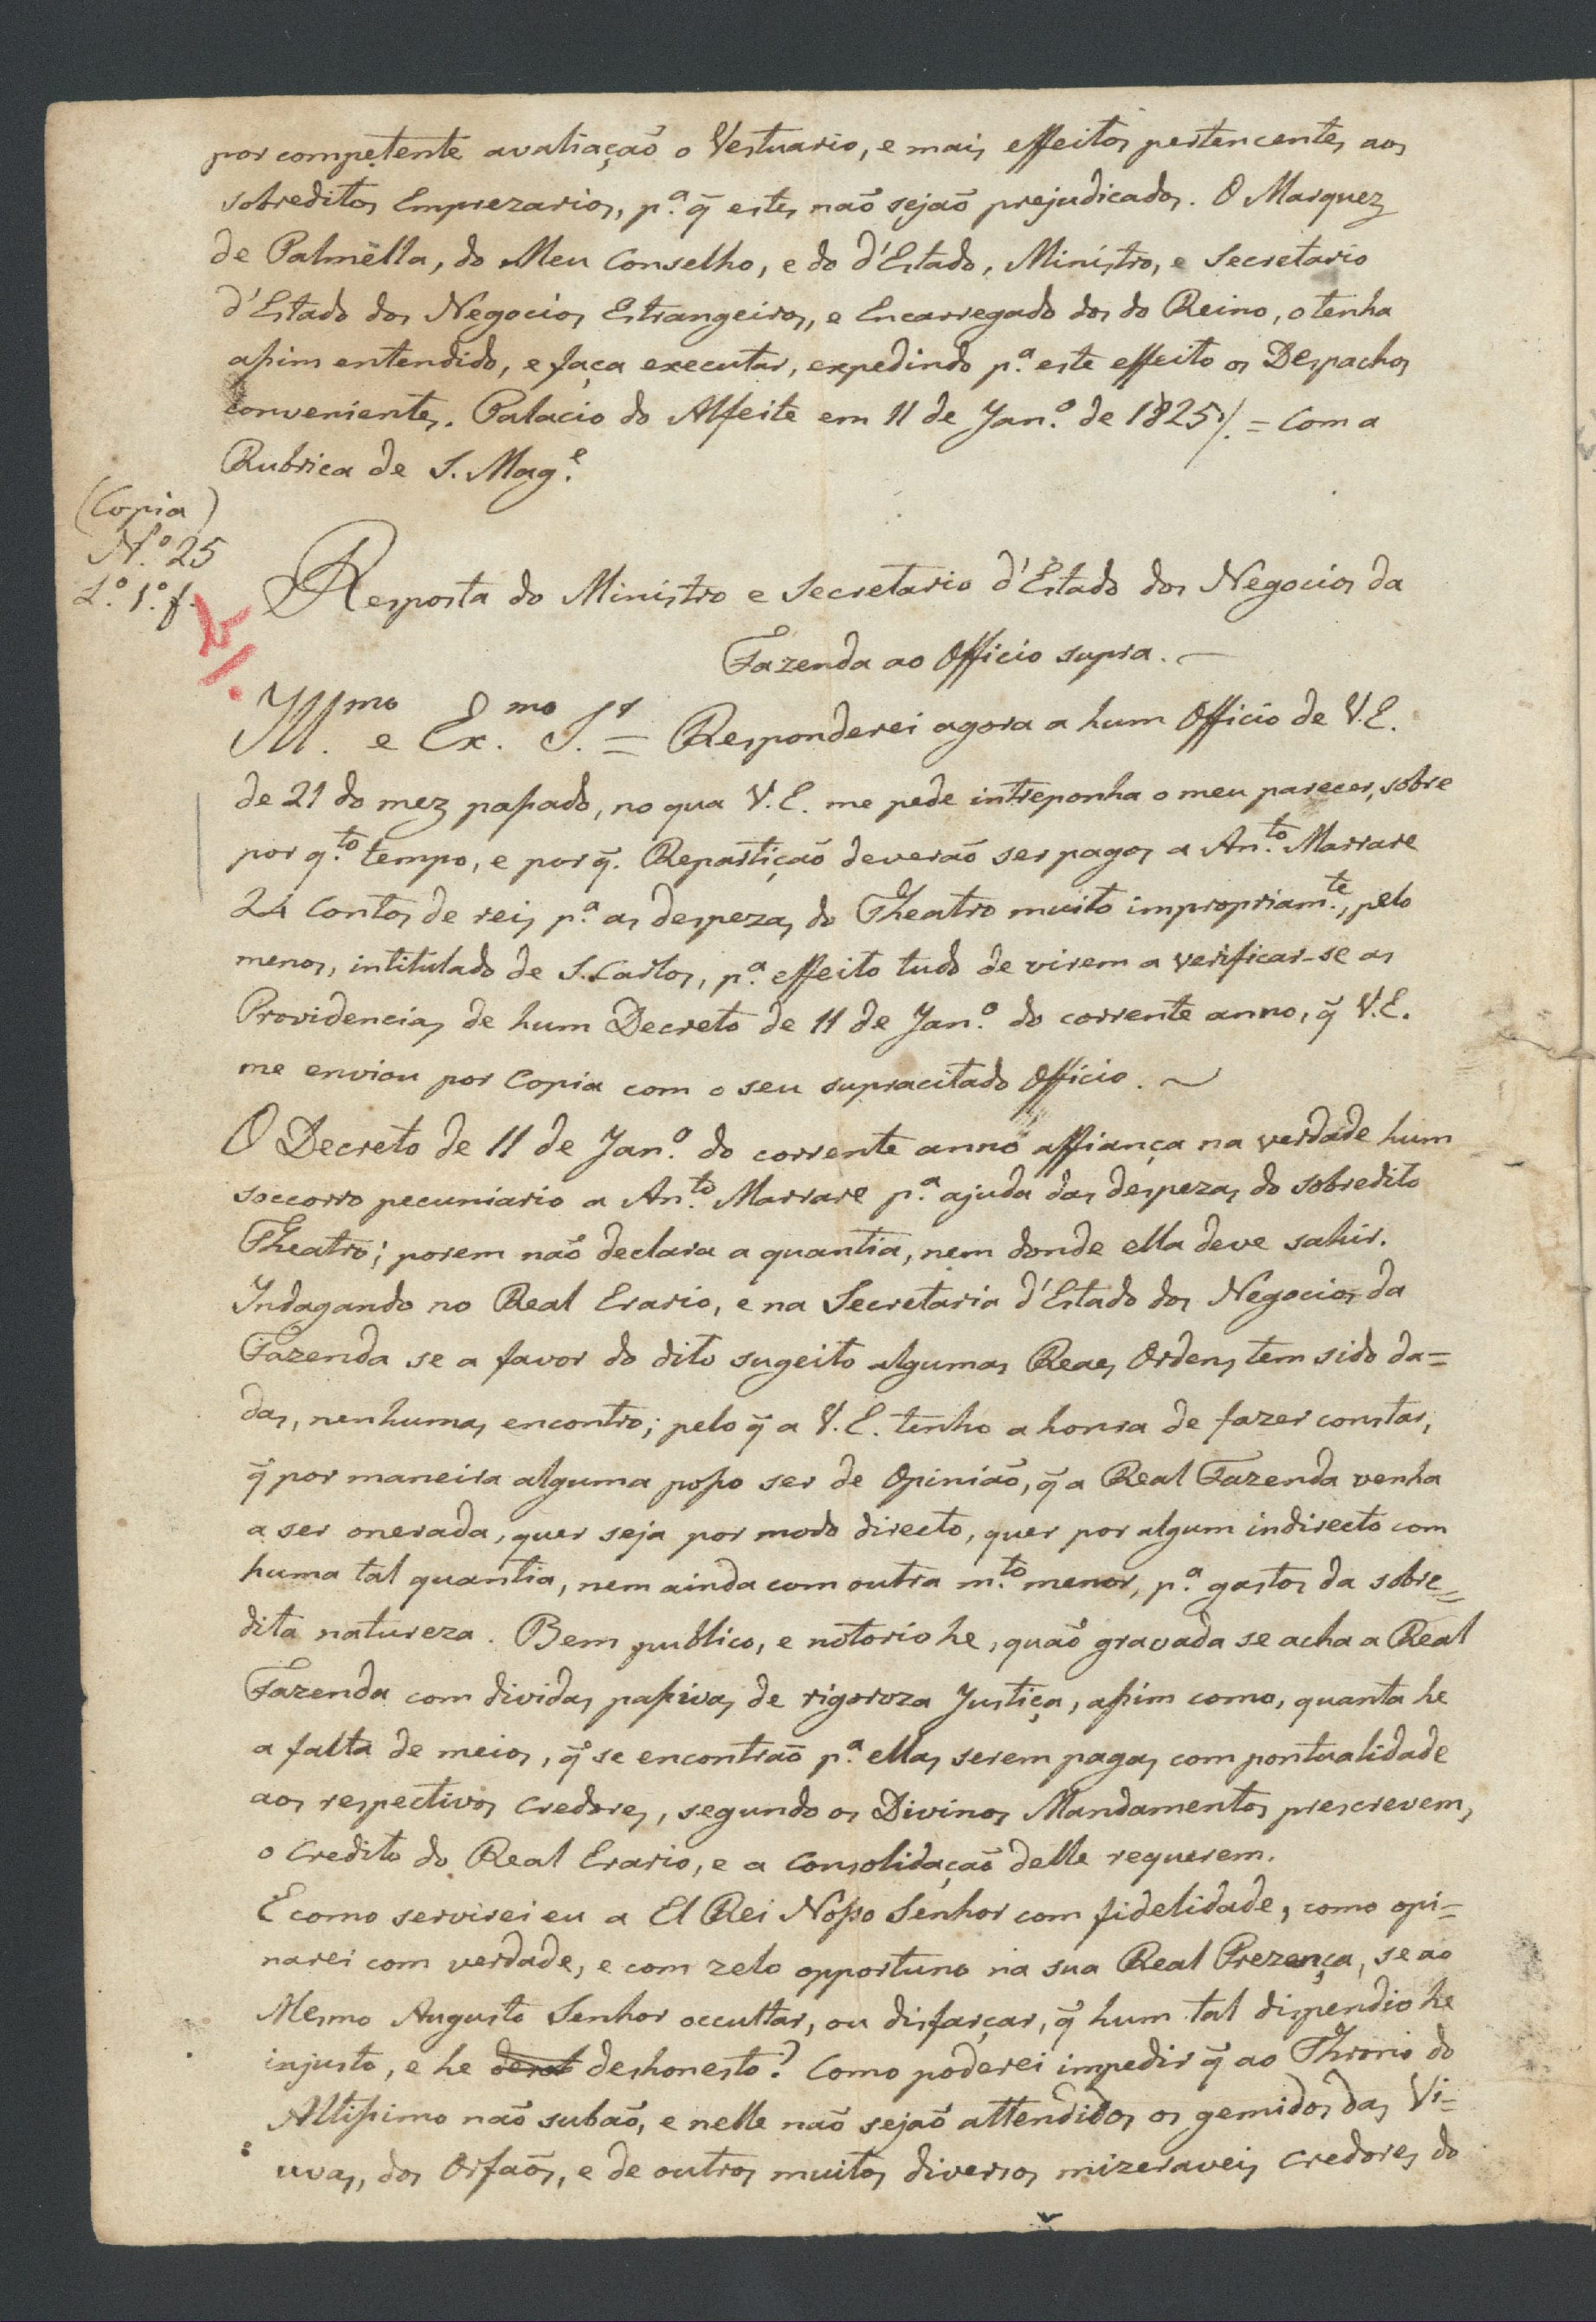 por competente avaliação o Vestuario, e mais effeitos pertencentes aos
sobreditos Emprezarios, p.ª q̃ estes naõ sejaõ prejudicados. O Marquez
de Palmélla, do Meu Conselho, e do d'Estado, Ministro, e Secretario
d'Estado dos Negocios Estrangeiros, e Encarregado dos do Reino, o tenha
assim entendido, e faça executar, expedindo p.ª este effeito os Despachos
convenientes. Palacio do Alfeite em 11 de Jan.º de 1825 ./. = Com a
Rubrica de S. Mag.e
(Copia)
N.º 25
L.º 1.º f.
Resposta do Ministro e Secretario d'Estado dos Negocios da
Fazenda ao Officio supra. —
Ill.mo e Ex.mo S.r = Responderei agora a hum Officio de V.E.
de 21 do mez passado, no qua V.E. me pede intreponha o meu parecer, sobre
por q.to tempo, e por q̃. Repartiçaõ deveraõ ser pagos a An.to Marrare
24 Contos de reis p.ª as despezas do Theatro muito impropriam.te, pelo
menos, intitulado de S. Carlos, p.ª effeito tudo de virem a verificar-se as
Providencias de hum Decreto de 11 de Jan.º do corrente anno, q̃ V.E.
me enviou por Copia com o seu supracitado Officio. ~
O Decreto de 11 de Jan.º do corrente anno affiança na verdade hum
soccorro pecuniario a An.to Marrare p.ª ajuda das despezas do sobredito
Theatro; porem naõ declara a quantia, nem donde ella deve sahir.
Indagando no Real Erario, e na Secretaria d'Estado dos Negocios da
Fazenda se a favor do dito sugeito algumas Reaes Ordens tem sido da=
das, nenhumas encontro; pelo q̃ a V.E. tenho a honra de fazer constar,
q̃ por maneira alguma posso ser de Opiniaõ, q̃ a Real Fazenda venha
a ser onerada, quer seja por modo directo, quer por algum indirecto com
huma tal quantia, nem ainda com outra m.to menor, p.ª gastos da sobre=
dita natureza. Bem publico, e notorio he, quaõ gravada se acha a Real
Fazenda com dividas passivas de rigoroza Justiça, assim como, quanta he
a falta de meios, q̃ se encontraõ p.ª ellas serem pagas com pontualidade
aos respectivos Credores, segundo os Divinos Mandamentos prescrevem,
o Credito do Real Erario, e a Consolidaçaõ delle requerem.
E como servirei eu a El Rei Nosso Senhor com fidelidade, como opi=
narei com verdade, e com zelo opportuno na sua Real Prezença, se ao
Mesmo Augusto Senhor occultar, ou disfarçar, q̃ hum tal dispendio he
injusto, e he deshonesto? Como poderei impedir q̃ ao Throno do
Altissimo naõ subaõ, e nelle naõ sejaõ attendidos os gemidos das Vi=
uvas, dos Orfaõs, e de outros muitos diversos mizeraveis Credores do